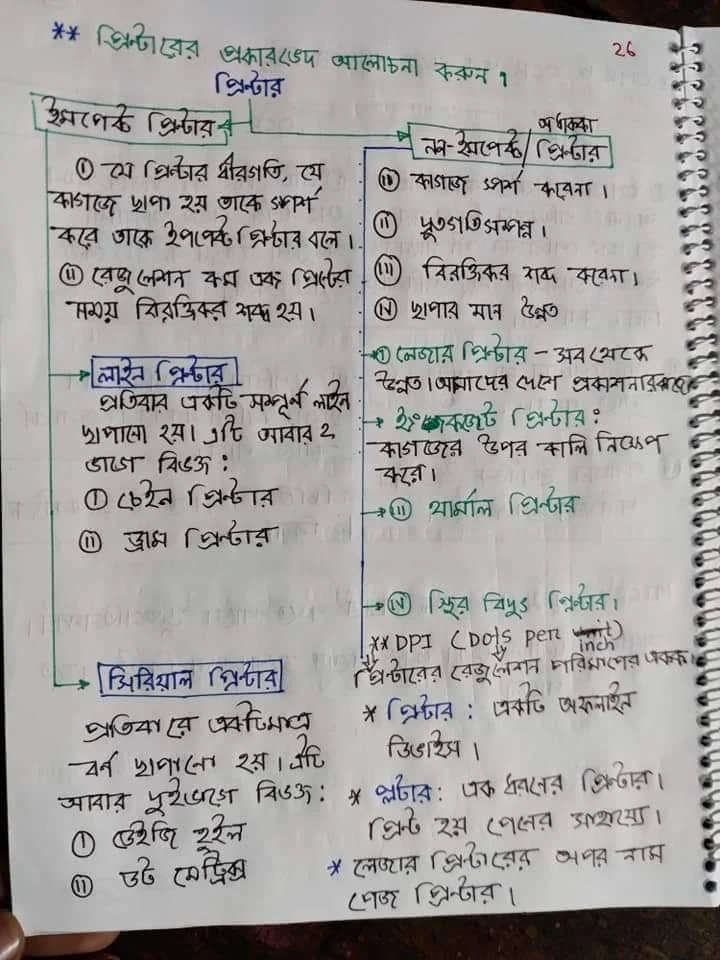 ** প্রিন্টারের প্রকারভেদ আলোচনা করুন।
26
প্রিন্টার
ইমপেক্ট প্রিন্টার
① যে প্রিন্টার ধীরগতি, যে
কাগজে ছাপা হয় তাকে স্পর্শ
করে তাকে ইপপেক্ট প্রিন্টার বলে।
② রেজুলেশন কম এবং প্রিন্টের
সময় বিরক্তিকর শব্দ হয়।
লাইন প্রিন্টার
প্রতিবার একটি সম্পূর্ণ লাইন
ছাপানো হয়। এটি আবার ২
ভাগে বিভক্ত:
① চেইন প্রিন্টার
⑪ ড্রাম প্রিন্টার
সিরিয়াল প্রিন্টার
প্রতিবারে একটিমাত্র
বর্ন ছাপানো হয়। এটি
আবার দুইভাগে বিভক্ত:
① ডেইজি হুইল
⑪ ডট মেট্রিক্স
অধাক্কা
নন-ইমপেক্ট/প্রিন্টার
কাগজে স্পর্শ করেনা।
⑪ দ্রুতগতিসম্পন্ন।
(iii) বিরক্তিকর শব্দ করেনা।
(iv) ছাপার মান উন্নত
① লেজার প্রিন্টার - সব থেকে
উন্নত। আমাদের দেশে
ইংকজেট প্রিন্টার:
কাগজের উপর কালি নিক্ষেপ
করে।
(iii) থার্মাল প্রিন্টার
(iv) স্থির বিদ্যুত প্রিন্টার।
** DPI (Dots per inch)
প্রিন্টারের রেজুলেশন পরিমাপের একক।
* প্রিন্টার: একটি অফলাইন
ডিভাইস।
* প্লটার: এক ধরনের প্রিন্টার।
প্রিন্ট হয় পেনের সাহায্যে।
* লেজার প্রিন্টারের অপর নাম
পেজ প্রিন্টার।